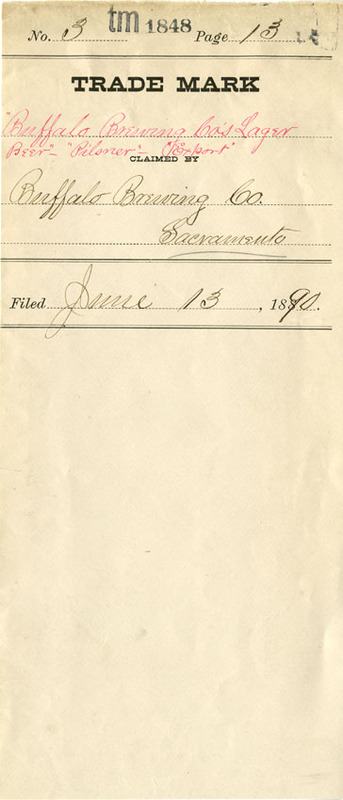 No. 3 tm 1848 Page 13
TRADE MARK
"Buffalo Brewing Co's Lager
Beer"- "Pilsner"- "Export"
CLAIMED BY
Buffalo Brewing Co.
Sacramento
Filed June 13, 1890.